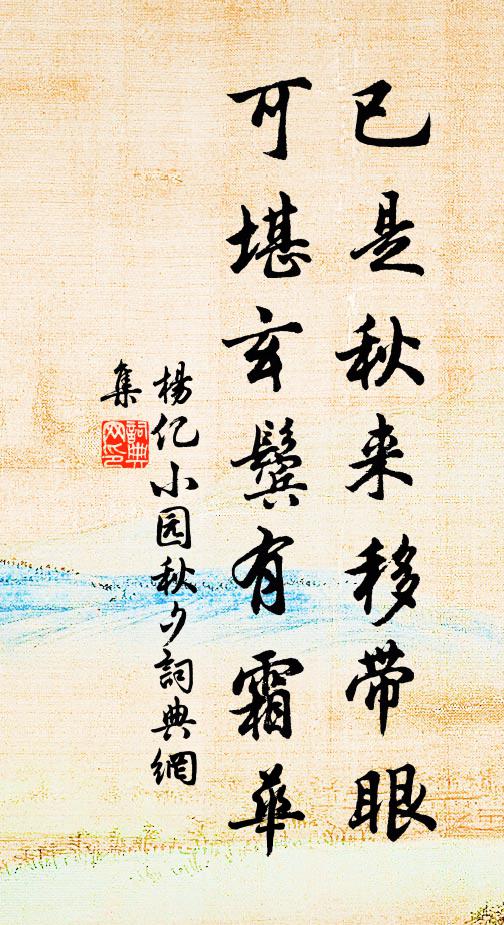 已是秋来移带眼
可堪玄鬓有霜华
杨亿小园秋夕詞典網
集
詞典
网印